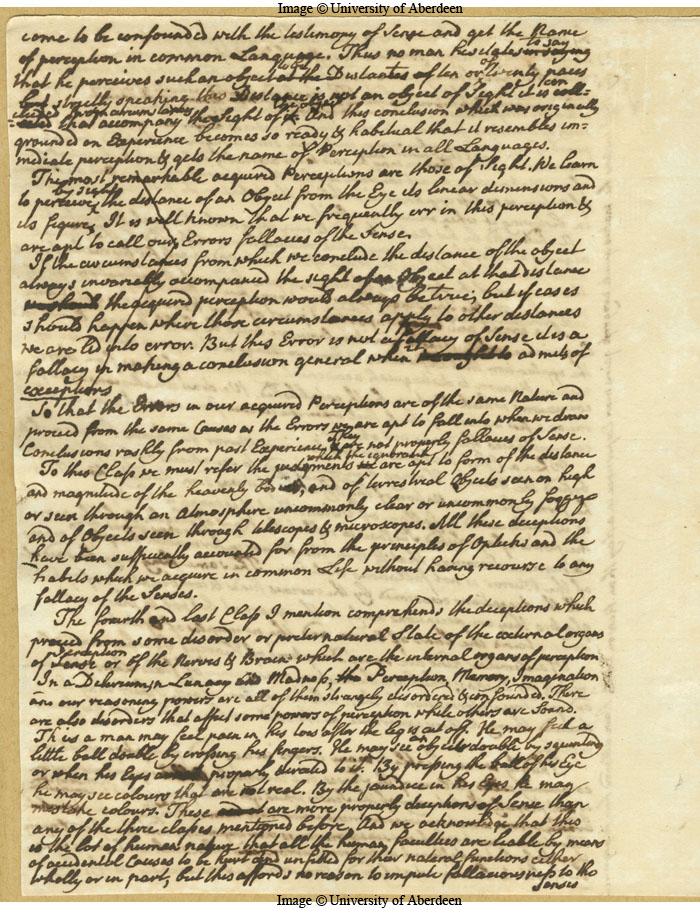 Image © University of Aberdeen
come to be confounded with the testimony of Sense and get the Name
of perception in common Language. Thus no man hesitates to say
that he perceives such an object at the Distance of ten or twenty paces
strictly speaking this Distance is not an object of Sight it is con-
cluded from circumstances that accompany the Sight of the object. And this conclusion which was originally
grounded on Experience becomes so ready & habitual that it resembles im-
mediate perception & gets the name of Perception in all Languages.
The most remarkable acquired Perceptions are those of Sight. We learn
to perceive by sight the distance of an Object from the Eye its linear dimensions and
its figure. It is well known that we frequently err in this perception &
are apt to call our Errors fallacies of the Sense.
If the circumstances from which we conclude the distance of the object
always invariably accompanied the sight of an Object at that distance
the acquired perception would always be true; but if cases
should happen where those circumstances apply to other distances
we are led into error. But this Error is not a fallacy of Sense it is a
fallacy in making a conclusion general when it admits of
exceptions
So that the Errors in our acquired Perceptions are of the same Nature and
proceed from the same Causes as the Errors we are apt to fall into when we draw
Conclusions rashly from past Experience & are not properly fallacies of Sense.
To this Class we must refer the judgments which the ignorant are apt to form of the distance
and magnitude of the heavenly bodies, and of terrestrial Objects seen on high
or seen through an Atmosphere uncommonly clear or uncommonly foggy
and of Objects seen through telescopes & microscopes. All these deceptions
have been sufficiently accounted for from the principles of Opticks and the
habits which we acquire in common Life without having recourse to any
fallacy of the Senses.
The fourth and last Class I mention comprehends the deceptions which
proceed from some disorder or preternatural State of the external organs
of Sense or of the Nerves & Brain which are the internal organs of perception
In a Delirium, in Lunacy and Madness, the Perception, Memory, Imagination
and our reasoning powers are all of them strangely disordered & confounded. There
are also disorders that affect some powers of perception while others are Sound.
Thus a man may feel pain in his toes after the leg is cut off. He may feel a
little ball double by crossing his fingers. He may see objects double by squinting
or when his Eyes properly directed to it. By pressing the ball of his Eye
he may see colours that are not real. By the jaundice in his Eyes he may
mistake colours. These are more properly deceptions of Sense than
any of the three classes mentioned before, And we acknowledge that this
is the lot of human nature that all the human faculties are liable by means
of accidental Causes to be hurt and unfitted for their natural functions either
wholly or in part, but this affords no reason to impute fallaciousness to the
Senses
Image © University of Aberdeen